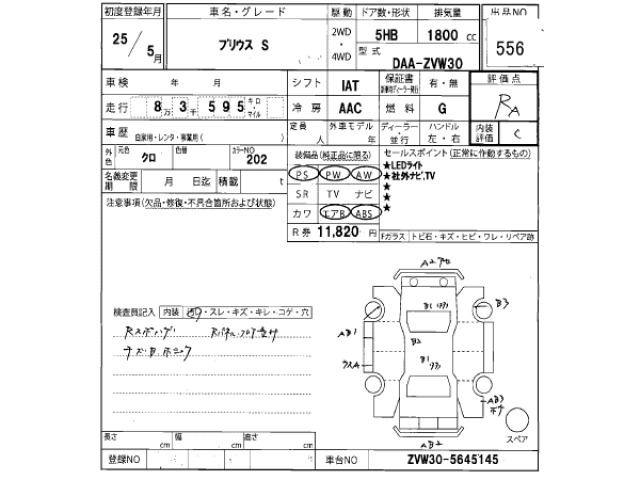 初度登録年月 車名・グレード 駆動 ドア数・形状 排気量 出品NO
25/5月 プリウス S 2WD・4WD 5HB 1800 cc 556
型式 DAA-ZVW30
車検 年 月 シフト IAT 保証書 有・無 評価点
走行 8万3千595キロ・マイル 冷房 AAC 燃料 G RA
車歴 自家用・レンタ・事業用( ) 定員 人 外車モデル 年 ディーラー・並行 ハンドル 左・右 内装評価 C
外色 元色 クロ 色替 カラーNO 202 装備品(純正品に限る) セールスポイント(正常に作動するもの)
PS PW AW ★LEDライト
名義変更期限 月 日迄 積載 t SR TV ナビ ★社外ナビ,TV
★
注意事項(欠品・修復・不具合箇所および状態) カワ エアB ABS ★
★
R券 11,820円 Fガラス トビ石・キズ・ヒビ・ワレ・リペア跡
A2
B1
B3
検査員記入 内装 ヨゴレ・スレ・キズ・キレ・コゲ・穴
AB1 B2
B1
AB3
AB2
スペア
長さ cm 幅 cm 高さ cm
登録NO 車台NO ZVW30-5645145